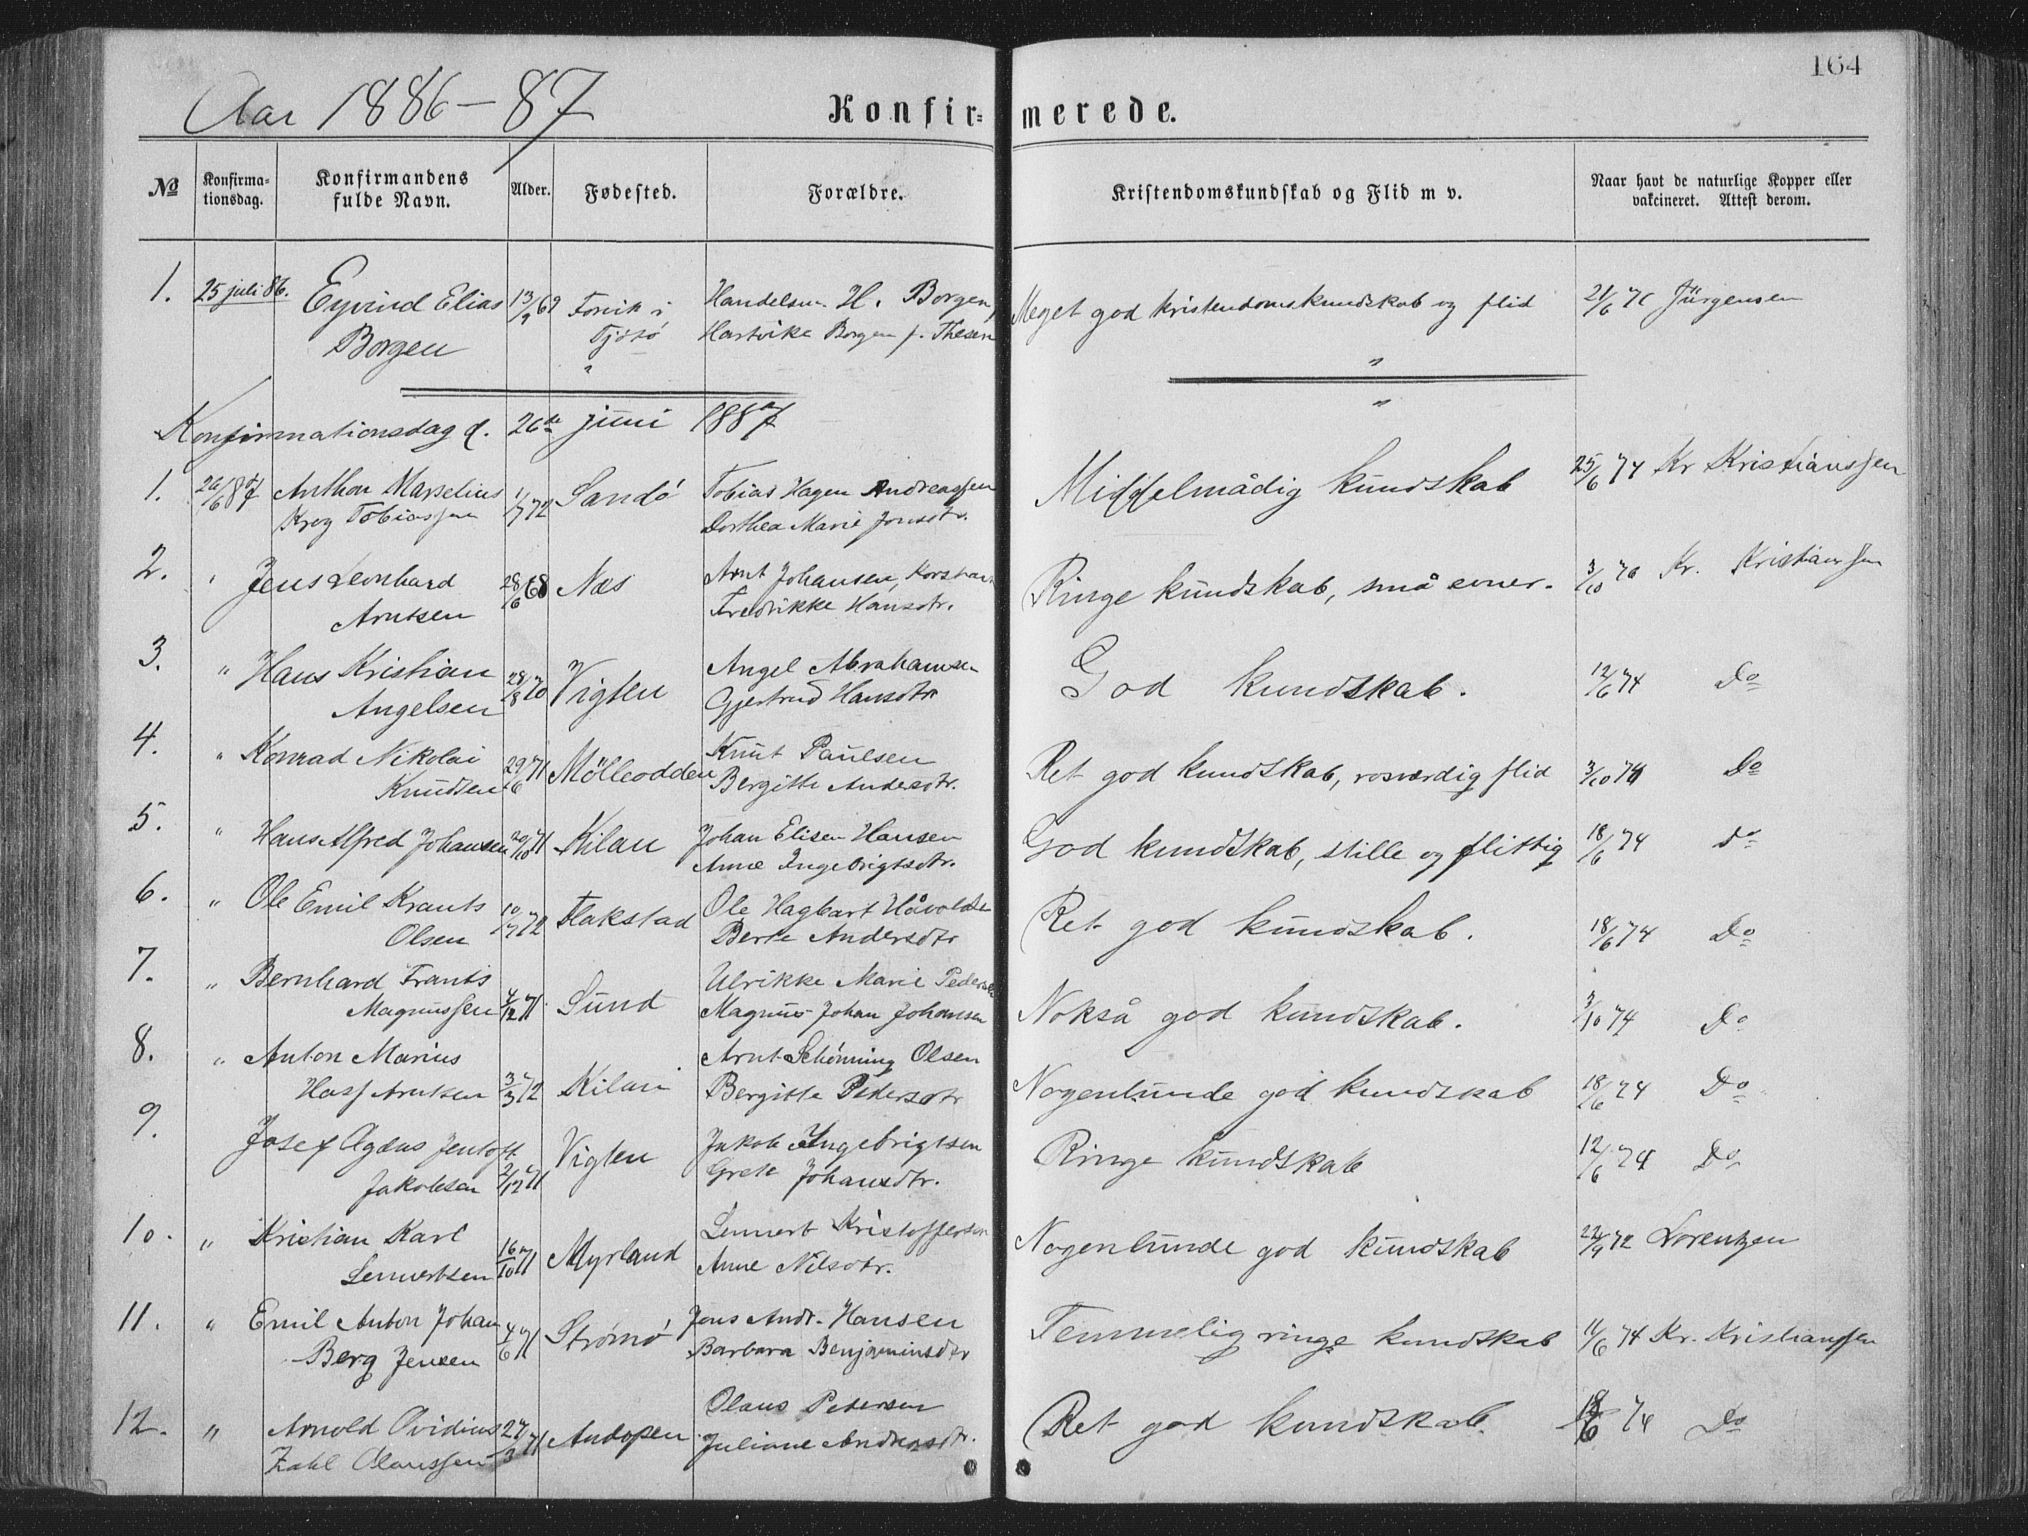 164
Aar 1886-87
Konfir= merede.
No Konfirma- tionsdag. Konfirmandens fulde Navn. Alder. Fødested. Forældre. Kristendomskundskab og Flid m v. Naar havt de naturlige Kopper eller vakcineret. Attest derom.
1. 25 juli 86. Eyvind Elias 13/9 69 Forvik i Handelsm. H. Borgen, Meget god kristendomskundskab og flid 21/6 71 Jürgensen
Borgen Tjøtø Hartvike Borgen f. Thesen
" "
Konfirmationsdag d. 26de juni 1887 "
1. 26/6 87 Anthon Marselius 1/7 72 Sandö Tobias Hagen Andreassen Middelmådig kundskab 25/6 74 Kr Kristianssen
Krog Tobiassen Dorthea Marie Jonsdtr.
2. " Jens Leonhard 28/6 68 Næs Arnt Johansen, Ringe kundskab, små evner. 3/10 70 Kr. Kristianssen
Arntsen Fredrikke Hansdtr.
3. " Hans Kristian 28/8 70 Vigten Angel Abrahamsen God kundskab. 12/6 74 Do
Angelsen Gjertrud Hansdtr
4. " Konrad Nikolai 29/6 71 Mölleodden Knut Paulsen Ret god kundskab, rosværdig flid 3/10 74 Do
Knudsen Bergitte Andersdtr.
5. " Hans Alfred Johansen 20/10 71 Kilan Johan Elisen Hansen God kundskab, stille og flittig 18/6 74 Do
Anne Ingebrigtsdtr.
6. " Ole Emil Krants 10/7 72 Flakstad Ole Hagbart Håvolds Ret god kundskab. 18/6 74 Do
Olsen Berte Andersdtr
7. " Bernhard Frants Ulrikke Marie Peders
Magnussen 4/12 71. Sund Magnus Johan Johansen Nokså god kundskab. 3/10 74 Do
8. " Anton Marius Arnt Schönning Olsen
Hass Arntsen 3/3 72 Kilan Bergitte Pedersdtr Nogenlunde god kundskab 18/6 74 Do
9. Josef Agæus Jentoft 2/12 71 Vigten Jakob Ingebrigtsen Ringe kundskab 12/6 74 Do
Jakobsen Grete Johansdtr.
10. " Kristian Karl 16/10 71 Myrland Lennert Kristoffersen Nogenlunde god kundskab 22/9 72 Lorentzen
Lennertsen Anne Nilsdtr.
11. " Emil Anton Johan 4/6 71 Strömö Jens Andr. Hansen Temmelig ringe kundskab 11/6 74 Kr. Kristianssen
Berg Jensen Barbara Benjaminsdtr
12. " Arnold Ovidius 27/3 71 Andopen Olaus Petersen Ret god kundskab. 18/6 74 Do
Zahl Olaussen Juliane Andreasdtr.